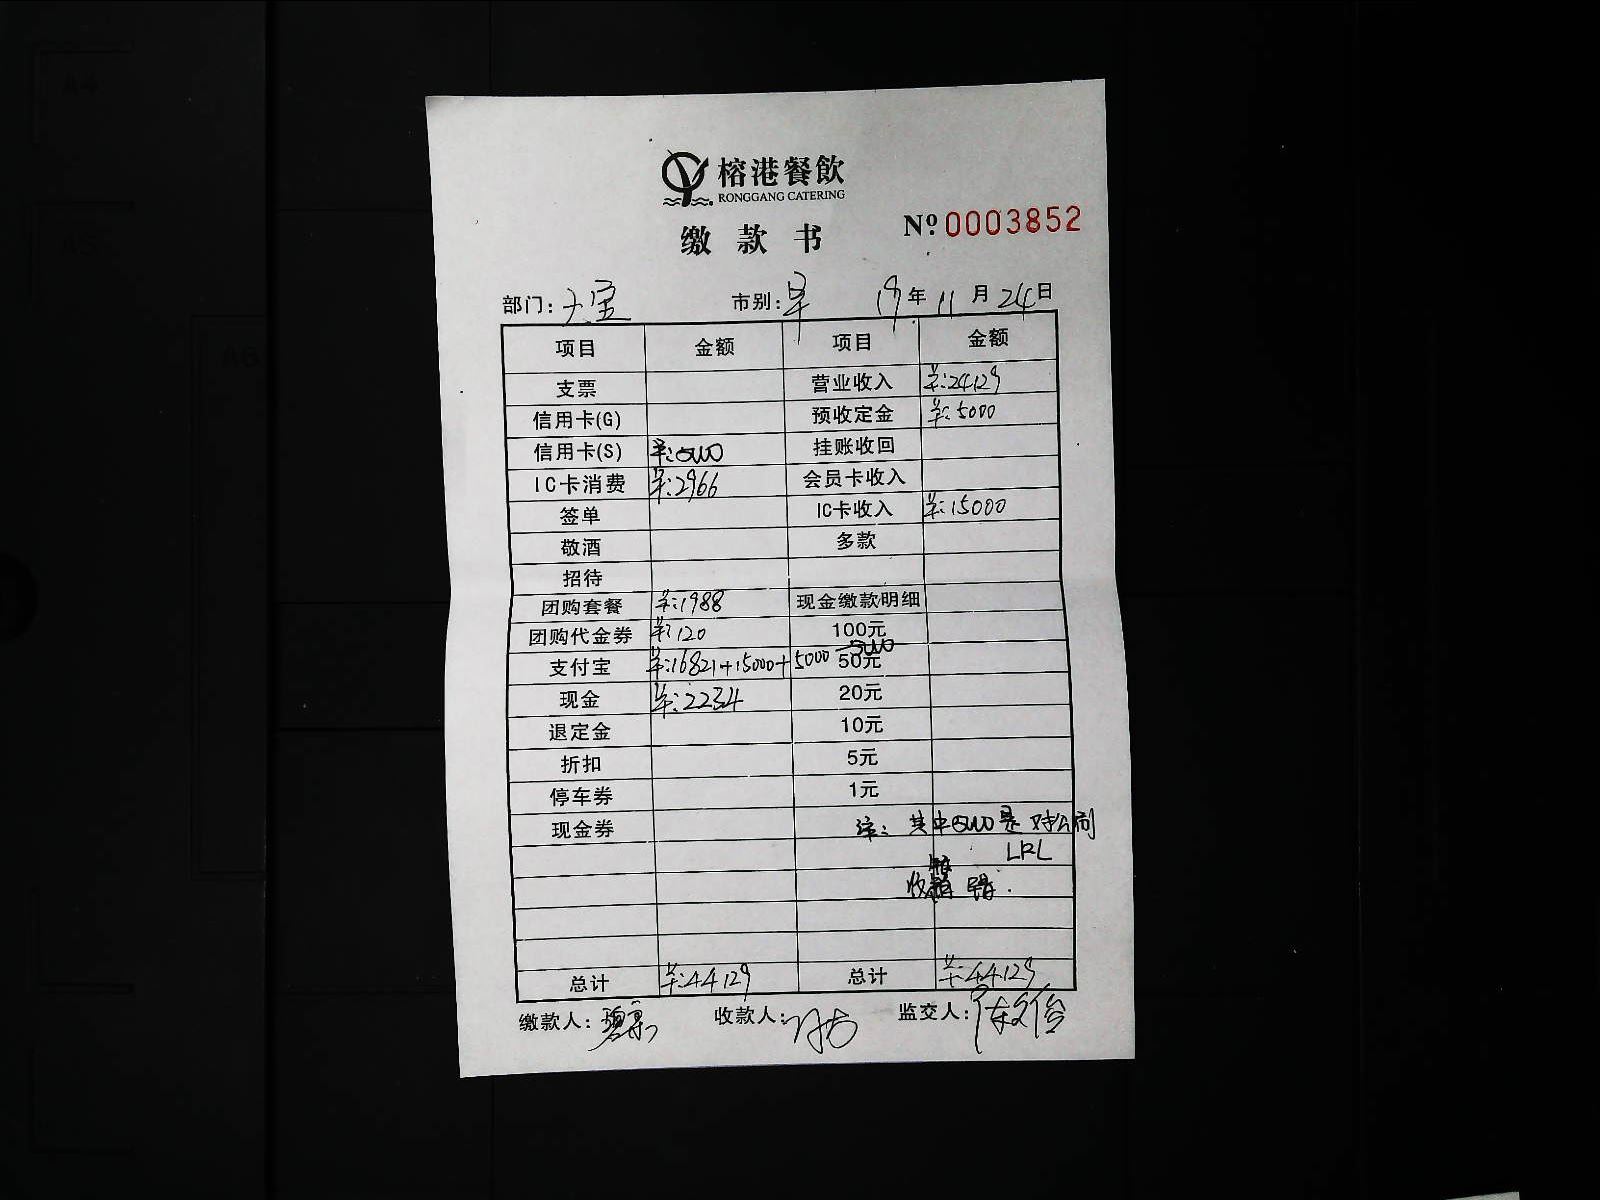 榕港餐飲
RONGGANG CATERING
№ 0003852
缴款书
部门: 大宝 市别: 早 19年 11月 24日
项目 金额 项目 金额
支票 营业收入 ¥:24129
信用卡(G) 预收定金 ¥:5000
信用卡(S) ¥:5000 挂账收回
IC卡消费 ¥:2966 会员卡收入
签单 IC卡收入 ¥:15000
敬酒 多款
招待
团购套餐 ¥:1988 现金缴款明细
团购代金券 ¥:120 100元
支付宝 ¥:16821+15000+5000 -5000 50元
现金 ¥:2234 20元
退定金 10元
折扣 5元
停车券 1元
现金券 注: 其中5000是 对公司
收
总计 ¥:44129 总计 ¥:44129
缴款人: 收款人: 监交人:
A4
A5
A6